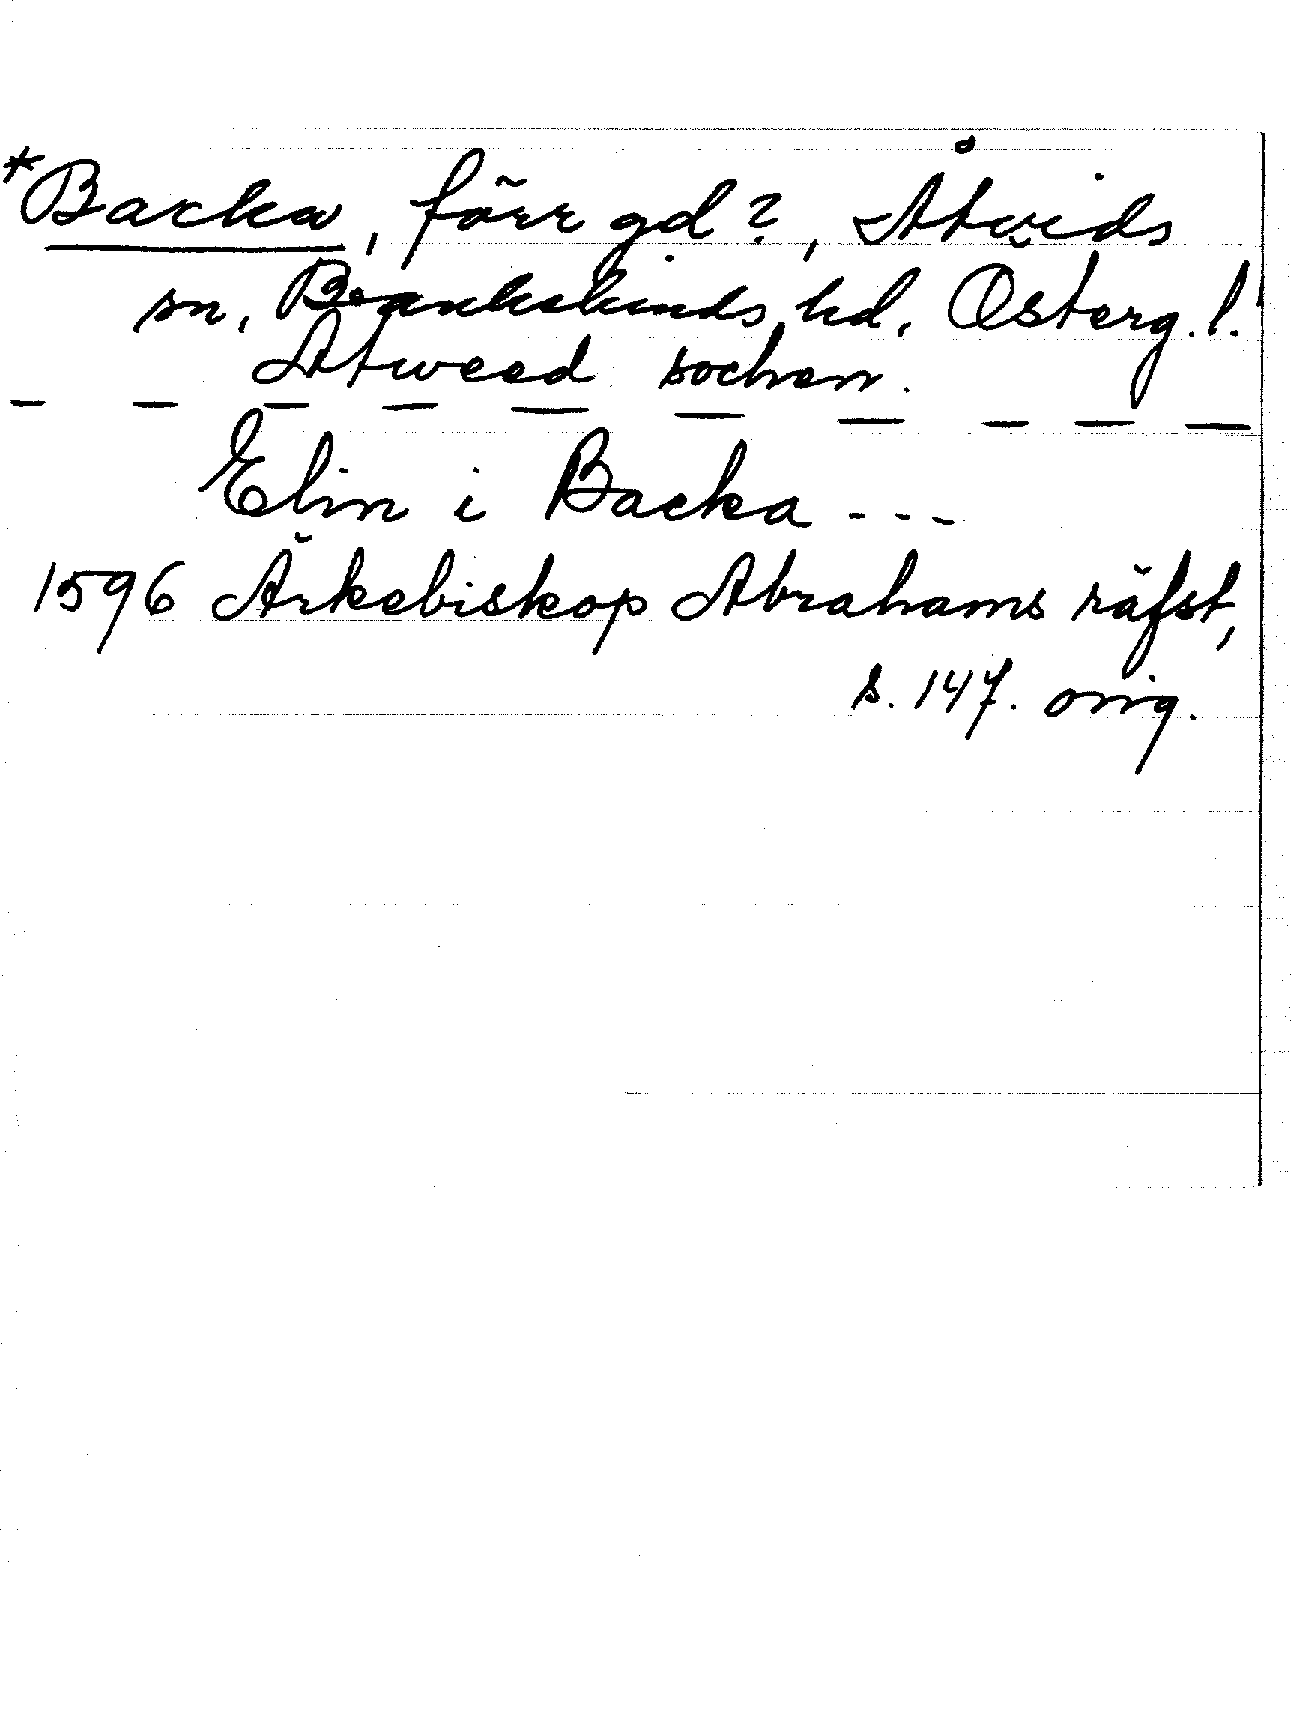 *Backa, förr gd?, Åtvids
sn, Bankekinds hd, Österg. l.
Atweed sochen.
— — — — — — — — — —
Elin i Backa - - -
1596 Ärkebiskop Abrahams räfst,
s. 147. orig.